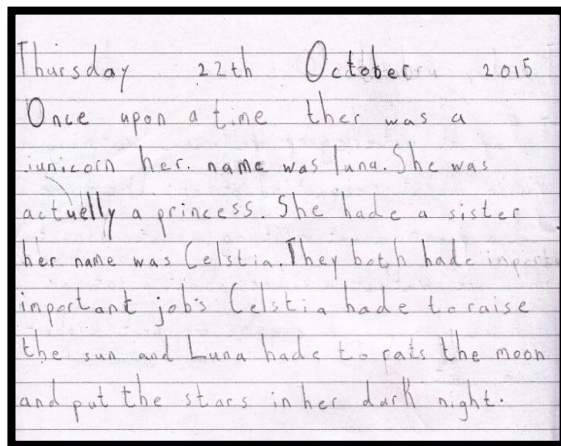 Thursday 22th October 2015
Once upon a time ther was a
iunicorn her. name was luna. She was
actuelly a princess. She hade a sister
her name was Celstia. They both hade import
important job's Celstia hade to raise
the sun and Luna hade to rats the moon
and put the stars in her dark night.